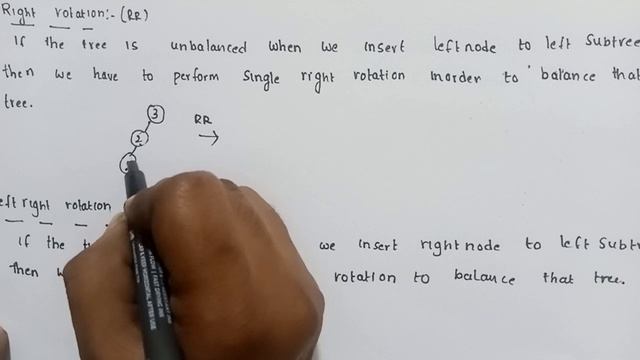 Right rotation:- (RR)
If the tree is unbalanced when we insert left node to left Subtree
then we have to perform single right rotation inorder to balance that
tree.
3
RR
2
eft right rotation
if the we insert right node to left Subt
then rotation to balance that tree.